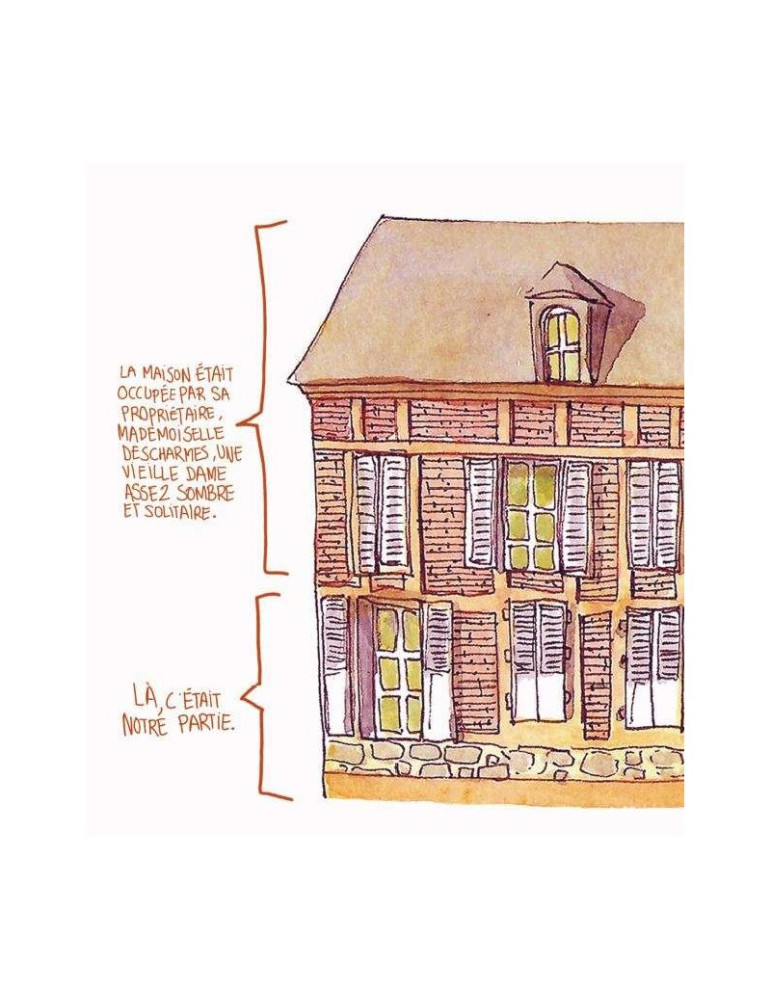 LA MAISON ÉTAIT
OCCUPÉE PAR SA
PROPRIÉTAIRE,
MADEMOISELLE
DESCHARMES, UNE
VIEILLE DAME
ASSEZ SOMBRE
ET SOLITAIRE.
LÀ, C'ÉTAIT
NOTRE PARTIE.